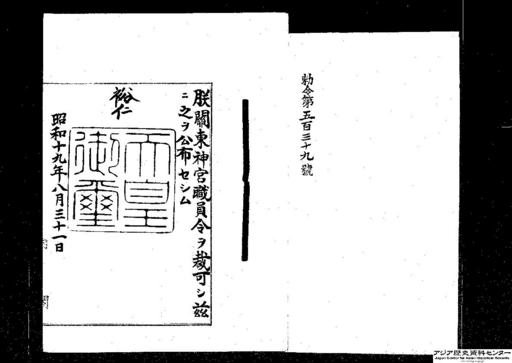 勅令第五百三十九號
朕關東神宮職員令ヲ裁可シ茲
ニ之ヲ公布セシム
裕仁
天皇
御璽
昭和十九年八月三十一日
アジア歴史資料センター
Japan Center for Asian Historical Records